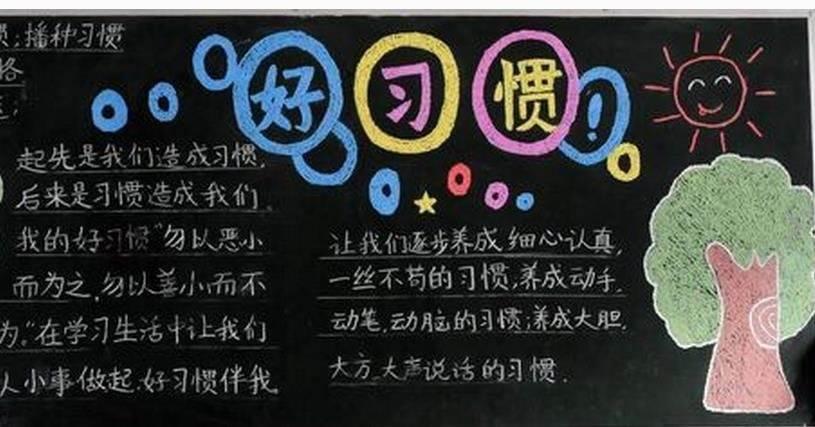 好习惯!
惯;播种习惯
格
起先是我们造成习惯,
后来是习惯造成我们.
我的好习惯"勿以恶小
而为之,勿以善小而不
为."在学习生活中让我们
从小事做起.好习惯伴我
让我们逐步养成细心认真,
一丝不苟的习惯,养成动手,
动笔,动脑的习惯;养成大胆,
大方,大声说话的习惯.